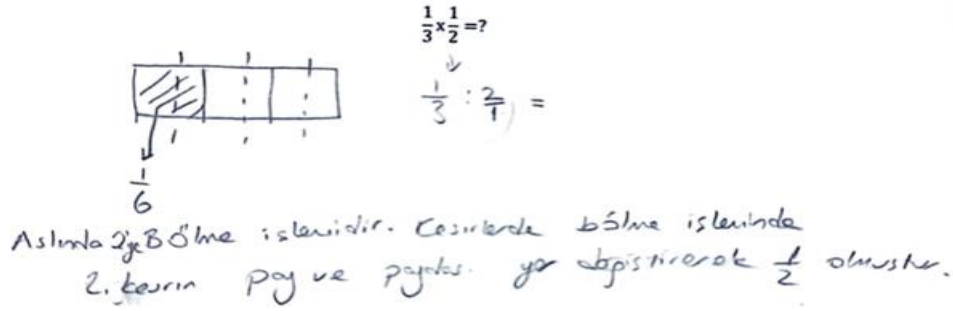 1/3 x 1/2 =?
1/3 : 2/1 =
1/6
Aslında 2'ye Bölme işlemidir. Kesirlerde bölme işleminde
2. kesrin pay ve paydası yer değiştirerek 1/2 olmuştur.